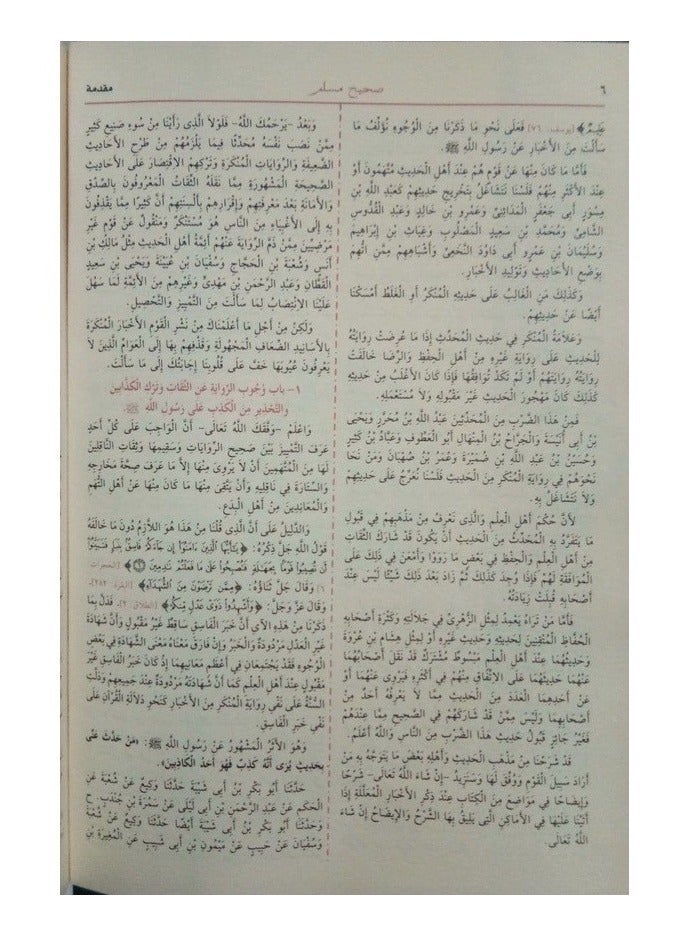 ٦
صحيح مسلم
مقدمة
عَلِيمٌ﴾ [يوسف: ٧٦] فَعَلَى نَحْوِ مَا ذَكَرْنَا مِنَ الْوُجُوهِ نُؤَلِّفُ مَا
سَأَلْتَ مِنَ الأَخْبَارِ عَنْ رَسُولِ اللَّهِ ﷺ.
فَأَمَّا مَا كَانَ مِنْهَا عَنْ قَوْمٍ هُمْ عِنْدَ أَهْلِ الْحَدِيثِ مُتَّهَمُونَ أَوْ
عِنْدَ الأَكْثَرِ مِنْهُمْ فَلَسْنَا نَتَشَاغَلُ بِتَخْرِيجِ حَدِيثِهِمْ كَعَبْدِ اللَّهِ بْنِ
مِسْوَرٍ أَبِى جَعْفَرٍ الْمَدَائِنِىِّ وَعَمْرِو بْنِ خَالِدٍ وَعَبْدِ الْقُدُّوسِ
الشَّامِىِّ وَمُحَمَّدِ بْنِ سَعِيدٍ الْمَصْلُوبِ وَغِيَاثِ بْنِ إِبْرَاهِيمَ
وَسُلَيْمَانَ بْنِ عَمْرٍو أَبِى دَاوُدَ النَّخَعِىِّ وَأَشْبَاهِهِمْ مِمَّنِ اتُّهِمَ
بِوَضْعِ الأَحَادِيثِ وَتَوْلِيدِ الأَخْبَارِ.
وَكَذَلِكَ مَنِ الْغَالِبُ عَلَى حَدِيثِهِ الْمُنْكَرُ أَوِ الْغَلَطُ أَمْسَكْنَا
أَيْضًا عَنْ حَدِيثِهِمْ.
وَعَلاَمَةُ الْمُنْكَرِ فِى حَدِيثِ الْمُحَدِّثِ إِذَا مَا عُرِضَتْ رِوَايَتُهُ
لِلْحَدِيثِ عَلَى رِوَايَةِ غَيْرِهِ مِنْ أَهْلِ الْحِفْظِ وَالرِّضَا خَالَفَتْ
رِوَايَتُهُ رِوَايَتَهُمْ أَوْ لَمْ تَكَدْ تُوَافِقُهَا فَإِذَا كَانَ الأَغْلَبُ مِنْ حَدِيثِهِ
كَذَلِكَ كَانَ مَهْجُورَ الْحَدِيثِ غَيْرَ مَقْبُولِهِ وَلاَ مُسْتَعْمَلِهِ.
فَمِنْ هَذَا الضَّرْبِ مِنَ الْمُحَدِّثِينَ عَبْدُ اللَّهِ بْنُ مُحَرَّرٍ وَيَحْيَى
بْنُ أَبِى أُنَيْسَةَ وَالْجَرَّاحُ بْنُ الْمِنْهَالِ أَبُو الْعَطُوفِ وَعَبَّادُ بْنُ كَثِيرٍ
وَحُسَيْنُ بْنُ عَبْدِ اللَّهِ بْنِ ضُمَيْرَةَ وَعُمَرُ بْنُ صُهْبَانَ وَمَنْ نَحَا
نَحْوَهُمْ فِى رِوَايَةِ الْمُنْكَرِ مِنَ الْحَدِيثِ فَلَسْنَا نُعَرِّجُ عَلَى حَدِيثِهِمْ
وَلاَ نَتَشَاغَلُ بِهِ.
لأَنَّ حُكْمَ أَهْلِ الْعِلْمِ وَالَّذِى نَعْرِفُ مِنْ مَذْهَبِهِمْ فِى قَبُولِ
مَا يَتَفَرَّدُ بِهِ الْمُحَدِّثُ مِنَ الْحَدِيثِ أَنْ يَكُونَ قَدْ شَارَكَ الثِّقَاتِ
مِنْ أَهْلِ الْعِلْمِ وَالْحِفْظِ فِى بَعْضِ مَا رَوَوْا وَأَمْعَنَ فِى ذَلِكَ عَلَى
الْمُوَافَقَةِ لَهُمْ فَإِذَا وُجِدَ كَذَلِكَ ثُمَّ زَادَ بَعْدَ ذَلِكَ شَيْئًا لَيْسَ عِنْدَ
أَصْحَابِهِ قُبِلَتْ زِيَادَتُهُ.
فَأَمَّا مَنْ تَرَاهُ يَعْمِدُ لِمِثْلِ الزُّهْرِىِّ فِى جَلاَلَتِهِ وَكَثْرَةِ أَصْحَابِهِ
الْحُفَّاظِ الْمُتْقِنِينَ لِحَدِيثِهِ وَحَدِيثِ غَيْرِهِ أَوْ لِمِثْلِ هِشَامِ بْنِ عُرْوَةَ
وَحَدِيثُهُمَا عِنْدَ أَهْلِ الْعِلْمِ مَبْسُوطٌ مُشْتَرَكٌ قَدْ نَقَلَ أَصْحَابُهُمَا
عَنْهُمَا حَدِيثَهُمَا عَلَى الاِتِّفَاقِ مِنْهُمْ فِى أَكْثَرِهِ فَيَرْوِى عَنْهُمَا أَوْ
عَنْ أَحَدِهِمَا الْعَدَدَ مِنَ الْحَدِيثِ مِمَّا لاَ يَعْرِفُهُ أَحَدٌ مِنْ
أَصْحَابِهِمَا وَلَيْسَ مِمَّنْ قَدْ شَارَكَهُمْ فِى الصَّحِيحِ مِمَّا عِنْدَهُمْ
فَغَيْرُ جَائِزٍ قَبُولُ حَدِيثِ هَذَا الضَّرْبِ مِنَ النَّاسِ وَاللَّهُ أَعْلَمُ.
قَدْ شَرَحْنَا مِنْ مَذْهَبِ الْحَدِيثِ وَأَهْلِهِ بَعْضَ مَا يَتَوَجَّهُ بِهِ مَنْ
أَرَادَ سَبِيلَ الْقَوْمِ وَوُفِّقَ لَهَا وَسَنَزِيدُ -إِنْ شَاءَ اللَّهُ تَعَالَى- شَرْحًا
وَإِيضَاحًا فِى مَوَاضِعَ مِنَ الْكِتَابِ عِنْدَ ذِكْرِ الأَخْبَارِ الْمُعَلَّلَةِ إِذَا
أَتَيْنَا عَلَيْهَا فِى الأَمَاكِنِ الَّتِى يَلِيقُ بِهَا الشَّرْحُ وَالإِيضَاحُ إِنْ شَاءَ
اللَّهُ تَعَالَى.
وَبَعْدُ -يَرْحَمُكَ اللَّهُ- فَلَوْلاَ الَّذِى رَأَيْنَا مِنْ سُوءِ صَنِيعِ كَثِيرٍ
مِمَّنْ نَصَبَ نَفْسَهُ مُحَدِّثًا فِيمَا يَلْزَمُهُمْ مِنْ طَرْحِ الأَحَادِيثِ
الضَّعِيفَةِ وَالرِّوَايَاتِ الْمُنْكَرَةِ وَتَرْكِهِمْ الاِقْتِصَارَ عَلَى الأَحَادِيثِ
الصَّحِيحَةِ الْمَشْهُورَةِ مِمَّا نَقَلَهُ الثِّقَاتُ الْمَعْرُوفُونَ بِالصِّدْقِ
وَالأَمَانَةِ بَعْدَ مَعْرِفَتِهِمْ وَإِقْرَارِهِمْ بِأَلْسِنَتِهِمْ أَنَّ كَثِيرًا مِمَّا يَقْذِفُونَ
بِهِ إِلَى الأَغْبِيَاءِ مِنَ النَّاسِ هُوَ مُسْتَنْكَرٌ وَمَنْقُولٌ عَنْ قَوْمٍ غَيْرِ
مَرْضِيِّينَ مِمَّنْ ذَمَّ الرِّوَايَةَ عَنْهُمْ أَئِمَّةُ أَهْلِ الْحَدِيثِ مِثْلُ مَالِكِ بْنِ
أَنَسٍ وَشُعْبَةَ بْنِ الْحَجَّاجِ وَسُفْيَانَ بْنِ عُيَيْنَةَ وَيَحْيَى بْنِ سَعِيدٍ
الْقَطَّانِ وَعَبْدِ الرَّحْمَنِ بْنِ مَهْدِىٍّ وَغَيْرِهِمْ مِنَ الأَئِمَّةِ لَمَا سَهُلَ
عَلَيْنَا الاِنْتِصَابُ لِمَا سَأَلْتَ مِنَ التَّمْيِيزِ وَالتَّحْصِيلِ.
وَلَكِنْ مِنْ أَجْلِ مَا أَعْلَمْنَاكَ مِنْ نَشْرِ الْقَوْمِ الأَخْبَارَ الْمُنْكَرَةَ
بِالأَسَانِيدِ الضِّعَافِ الْمَجْهُولَةِ وَقَذْفِهِمْ بِهَا إِلَى الْعَوَامِّ الَّذِينَ لاَ
يَعْرِفُونَ عُيُوبَهَا خَفَّ عَلَى قُلُوبِنَا إِجَابَتُكَ إِلَى مَا سَأَلْتَ.
١- باب وُجُوبِ الرِّوَايَةِ عَنِ الثِّقَاتِ وَتَرْكِ الْكَذَّابِينَ
وَالتَّحْذِيرِ مِنَ الْكَذِبِ عَلَى رَسُولِ اللَّهِ ﷺ.
وَاعْلَمْ -وَفَّقَكَ اللَّهُ تَعَالَى- أَنَّ الْوَاجِبَ عَلَى كُلِّ أَحَدٍ
عَرَفَ التَّمْيِيزَ بَيْنَ صَحِيحِ الرِّوَايَاتِ وَسَقِيمِهَا وَثِقَاتِ النَّاقِلِينَ
لَهَا مِنَ الْمُتَّهَمِينَ أَنْ لاَ يَرْوِىَ مِنْهَا إِلاَّ مَا عَرَفَ صِحَّةَ مَخَارِجِهِ
وَالسِّتَارَةَ فِى نَاقِلِيهِ وَأَنْ يَتَّقِىَ مِنْهَا مَا كَانَ مِنْهَا عَنْ أَهْلِ التُّهَمِ
وَالْمُعَانِدِينَ مِنْ أَهْلِ الْبِدَعِ.
وَالدَّلِيلُ عَلَى أَنَّ الَّذِى قُلْنَا مِنْ هَذَا هُوَ اللاَّزِمُ دُونَ مَا خَالَفَهُ
قَوْلُ اللَّهِ جَلَّ ذِكْرُهُ: ﴿يَٰٓأَيُّهَا ٱلَّذِينَ ءَامَنُوٓا۟ إِن جَآءَكُمْ فَاسِقٌۢ بِنَبَإٍ فَتَبَيَّنُوٓا۟
أَن تُصِيبُوا۟ قَوْمًۢا بِجَهَٰلَةٍ فَتُصْبِحُوا۟ عَلَىٰ مَا فَعَلْتُمْ نَٰدِمِينَ﴾ [الحجرات:
٦] وَقَالَ جَلَّ ثَنَاؤُهُ: ﴿مِمَّن تَرْضَوْنَ مِنَ ٱلشُّهَدَآءِ﴾ [البقرة: ٢٨٢]
وَقَالَ عَزَّ وَجَلَّ: ﴿وَأَشْهِدُوا۟ ذَوَىْ عَدْلٍ مِّنكُمْ﴾ [الطلاق: ٢]. فَدَلَّ بِمَا
ذَكَرْنَا مِنْ هَذِهِ الآىِ أَنَّ خَبَرَ الْفَاسِقِ سَاقِطٌ غَيْرُ مَقْبُولٍ وَأَنَّ شَهَادَةَ
غَيْرِ الْعَدْلِ مَرْدُودَةٌ وَالْخَبَرُ وَإِنْ فَارَقَ مَعْنَاهُ مَعْنَى الشَّهَادَةِ فِى بَعْضِ
الْوُجُوهِ فَقَدْ يَجْتَمِعَانِ فِى أَعْظَمِ مَعَانِيهِمَا إِذْ كَانَ خَبَرُ الْفَاسِقِ غَيْرَ
مَقْبُولٍ عِنْدَ أَهْلِ الْعِلْمِ كَمَا أَنَّ شَهَادَتَهُ مَرْدُودَةٌ عِنْدَ جَمِيعِهِمْ وَدَلَّتِ
السُّنَّةُ عَلَى نَفْىِ رِوَايَةِ الْمُنْكَرِ مِنَ الأَخْبَارِ كَنَحْوِ دَلاَلَةِ الْقُرْآنِ عَلَى
نَفْىِ خَبَرِ الْفَاسِقِ.
وَهُوَ الأَثَرُ الْمَشْهُورُ عَنْ رَسُولِ اللَّهِ ﷺ: «مَنْ حَدَّثَ عَنِّى
بِحَدِيثٍ يُرَى أَنَّهُ كَذِبٌ فَهُوَ أَحَدُ الْكَاذِبِينَ».
حَدَّثَنَا أَبُو بَكْرِ بْنُ أَبِى شَيْبَةَ حَدَّثَنَا وَكِيعٌ عَنْ شُعْبَةَ عَنِ
الْحَكَمِ عَنْ عَبْدِ الرَّحْمَنِ بْنِ أَبِى لَيْلَى عَنْ سَمُرَةَ بْنِ جُنْدَبٍ. ح
وَحَدَّثَنَا أَبُو بَكْرِ بْنُ أَبِى شَيْبَةَ أَيْضًا حَدَّثَنَا وَكِيعٌ عَنْ شُعْبَةَ
وَسُفْيَانَ عَنْ حَبِيبٍ عَنْ مَيْمُونِ بْنِ أَبِى شَبِيبٍ عَنِ الْمُغِيرَةِ بْنِ